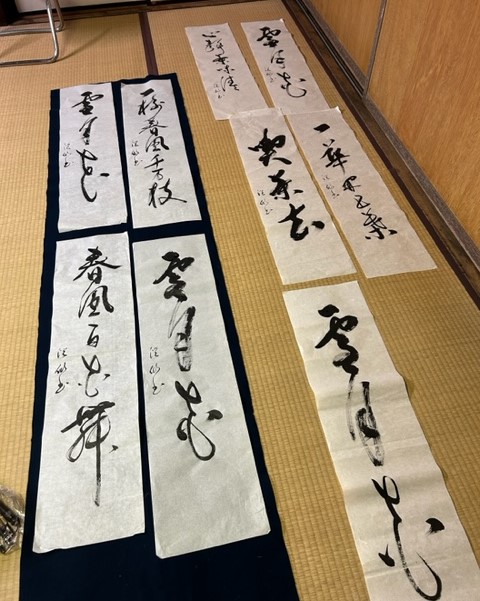 雪月花
心静茶味清
一華開五葉
喫茶去
雪月花
一樹春風千万枝
雪月花
雪月花
春風百花舞